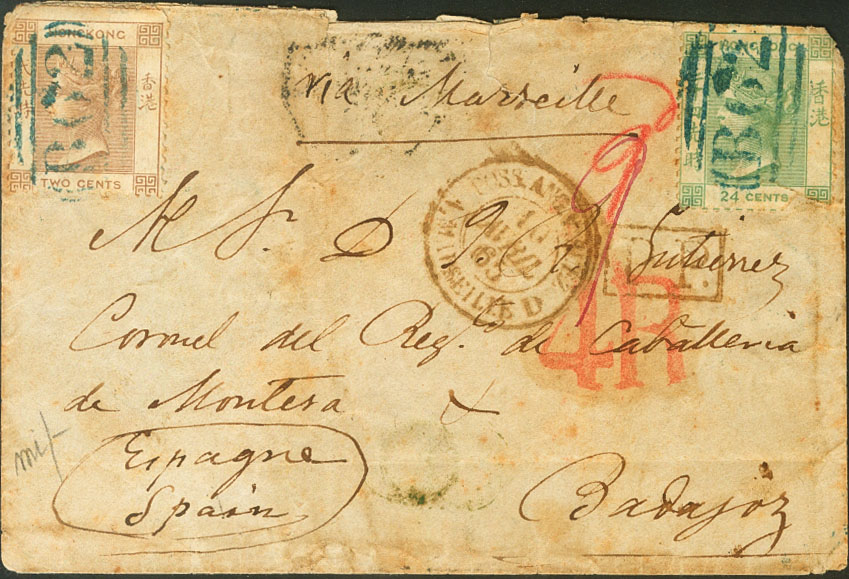 HONGKONG
香港
B62
TWO CENTS
via Marseille
HONG KONG
香港
B62
24 CENTS
9
POSS. ANG.
MARSEILLE D
M S. D
Gutierrez
4R
Coronel del Reg.º de Caballeria
de Montesa &
Espagne
Spain
Badajoz